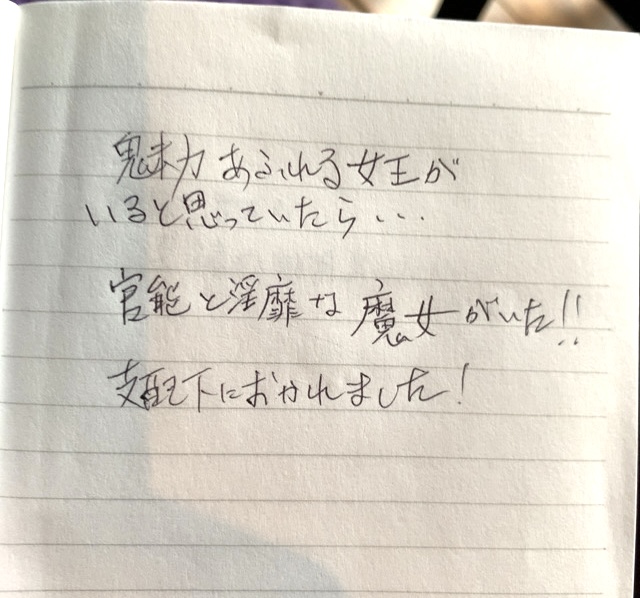 魅力あふれる女王が
いると思っていたら・・・
官能と淫靡な魔女がいた!!
支配下におかれました!